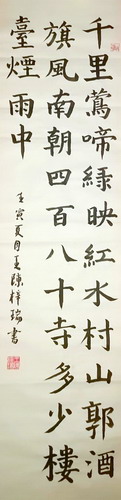 千里鶯啼綠映紅水村山郭酒
旗風南朝四百八十寺多少樓
臺煙雨中
壬寅夏月王陳梓瑞書